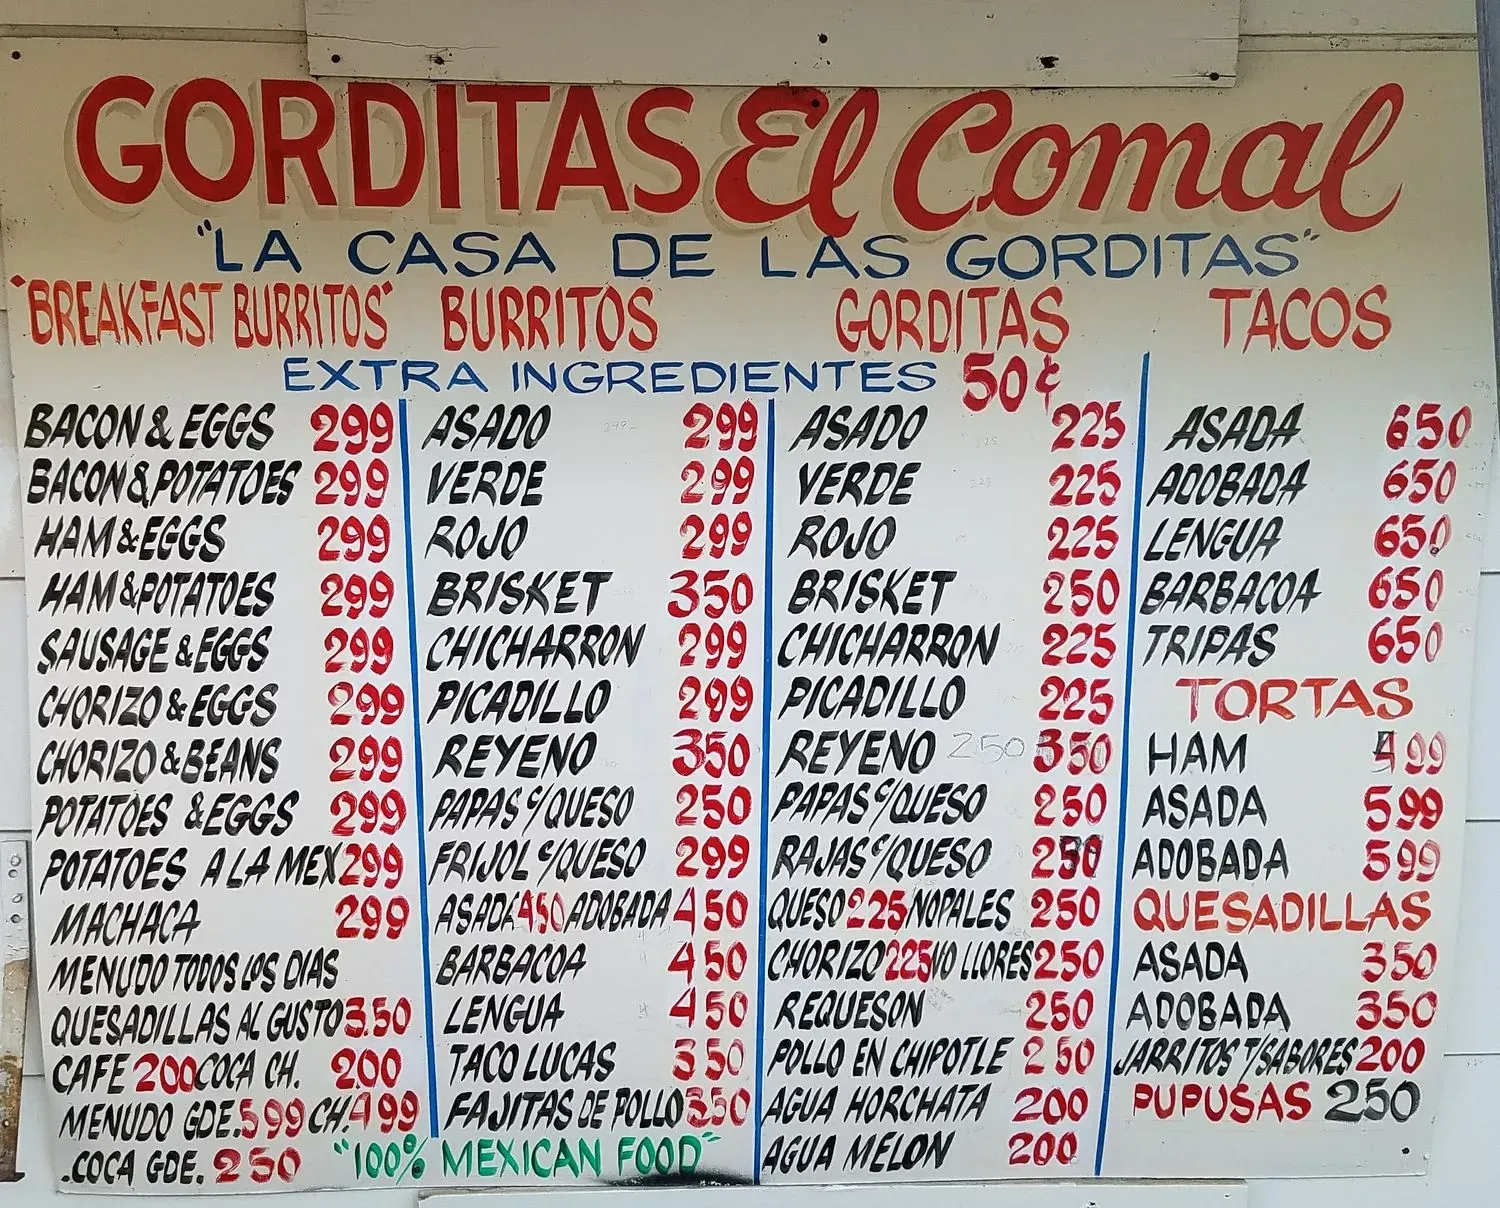 GORDITAS El Comal
"LA CASA DE LAS GORDITAS"
"BREAKFAST BURRITOS"
BURRITOS
GORDITAS
TACOS
EXTRA INGREDIENTES 50¢
BACON & EGGS 299
BACON & POTATOES 299
HAM & EGGS 299
HAM & POTATOES 299
SAUSAGE & EGGS 299
CHORIZO & EGGS 299
CHORIZO & BEANS 299
POTATOES & EGGS 299
POTATOES A LA MEX 299
MACHACA 299
MENUDO TODOS LOS DIAS
QUESADILLAS AL GUSTO 3.50
CAFE 200 COCA CH. 200
MENUDO GDE. 599 CH. 499
.COCA GDE. 250
ASADO 299
VERDE 299
ROJO 299
BRISKET 350
CHICHARRON 299
PICADILLO 299
REYENO 350
PAPAS C/QUESO 250
FRIJOL C/QUESO 299
ASADA 450 ADOBADA 450
BARBACOA 450
LENGUA 450
TACO LUCAS 350
FAJITAS DE POLLO 350
"100% MEXICAN FOOD"
ASADO 225
VERDE 225
ROJO 225
BRISKET 250
CHICHARRON 225
PICADILLO 225
REYENO 250 350
PAPAS C/QUESO 250
RAJAS C/QUESO 250
QUESO 225 NOPALES 250
CHORIZO 225 NO LLORES 250
REQUESON 250
POLLO EN CHIPOTLE 250
AGUA HORCHATA 200
AGUA MELON 200
ASADA 650
ADOBADA 650
LENGUA 650
BARBACOA 650
TRIPAS 650
TORTAS
HAM 499
ASADA 599
ADOBADA 599
QUESADILLAS
ASADA 350
ADOBADA 350
JARRITOS T/SABORES 200
PUPUSAS 250